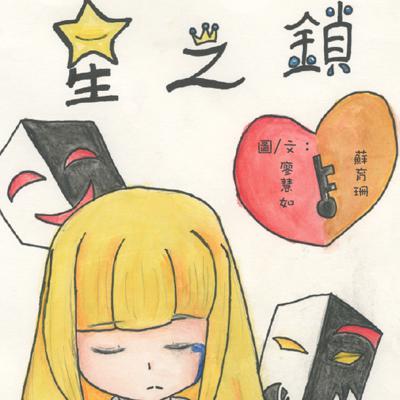 星之鎖
圖/文：
廖慧如
蘇育珊